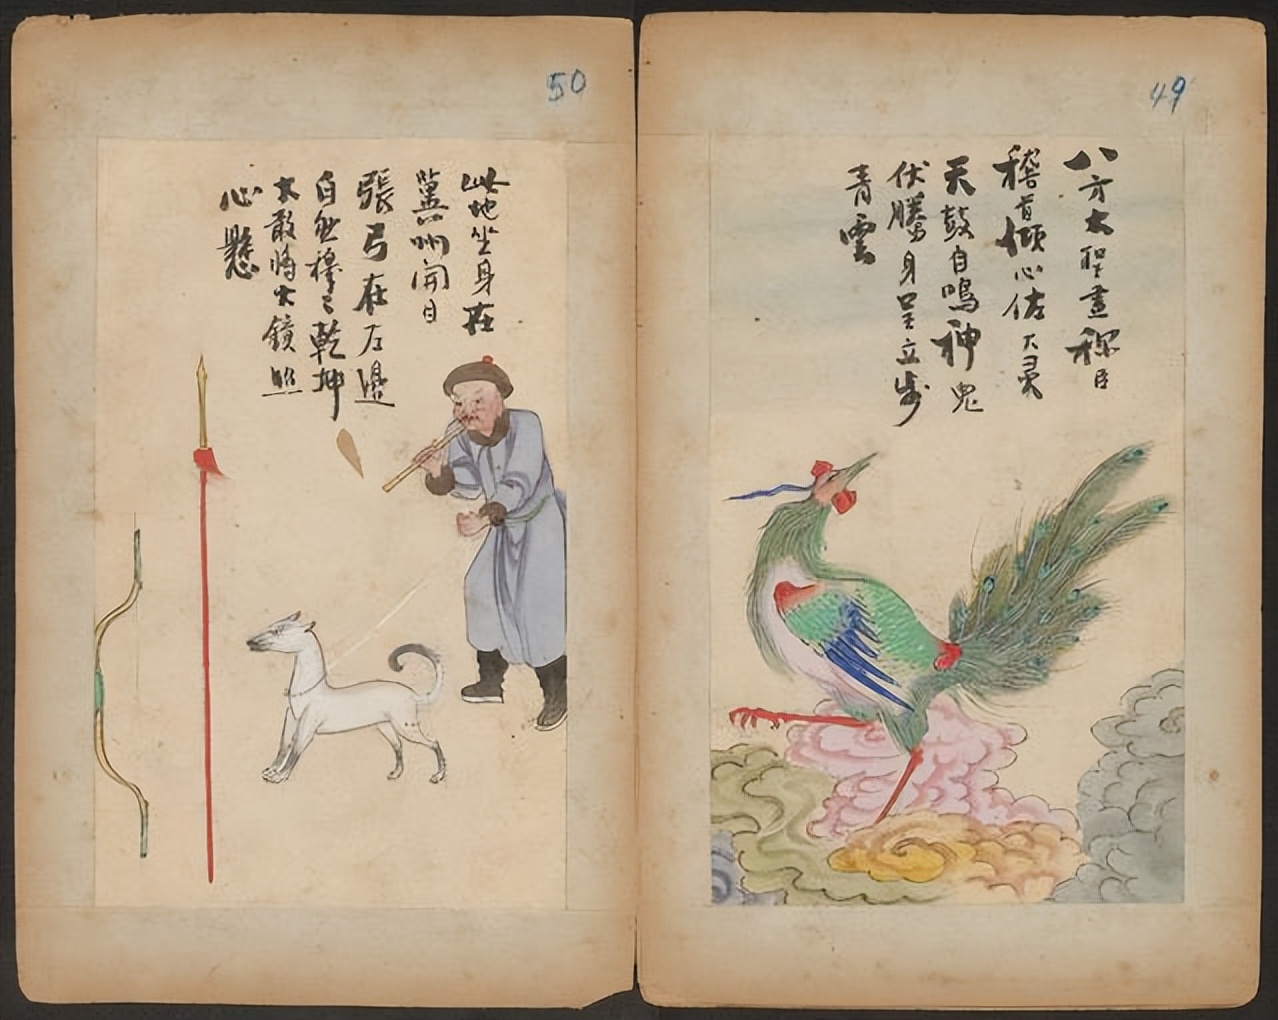 49
八方大聖盡稱臣
稽首傾心佐大灵
天鼓自鳴神鬼
伏騰身呈立步
青雲
50
此地生身在
冀州開日
張弓在左邊
自然穆〻乾坤
大敢將大鏡照
心懸